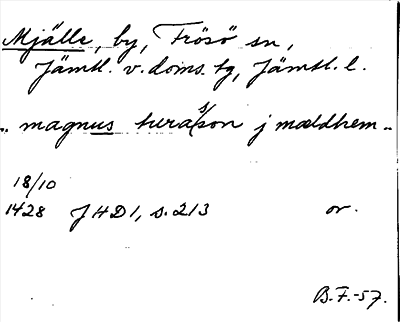 Mjälle, by, Frösö sn,
Jämtl. v. doms. tg, Jämtl. l.
.. magnus tura/s/son j mældhem ..
18/10
1428 JHD 1, s. 213 or.
B.F.-57.